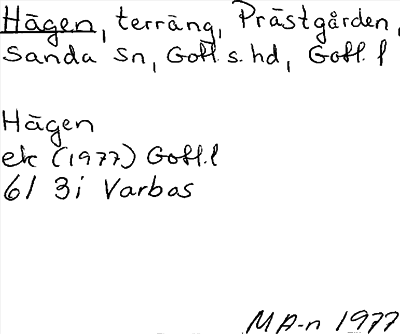 Hägen, terräng, Prästgården,
Sanda sn, Gotl. s. hd, Gotl. l
Hägen
ek (1977) Gotl. l
6I 3i Varbas
MA-n 1977